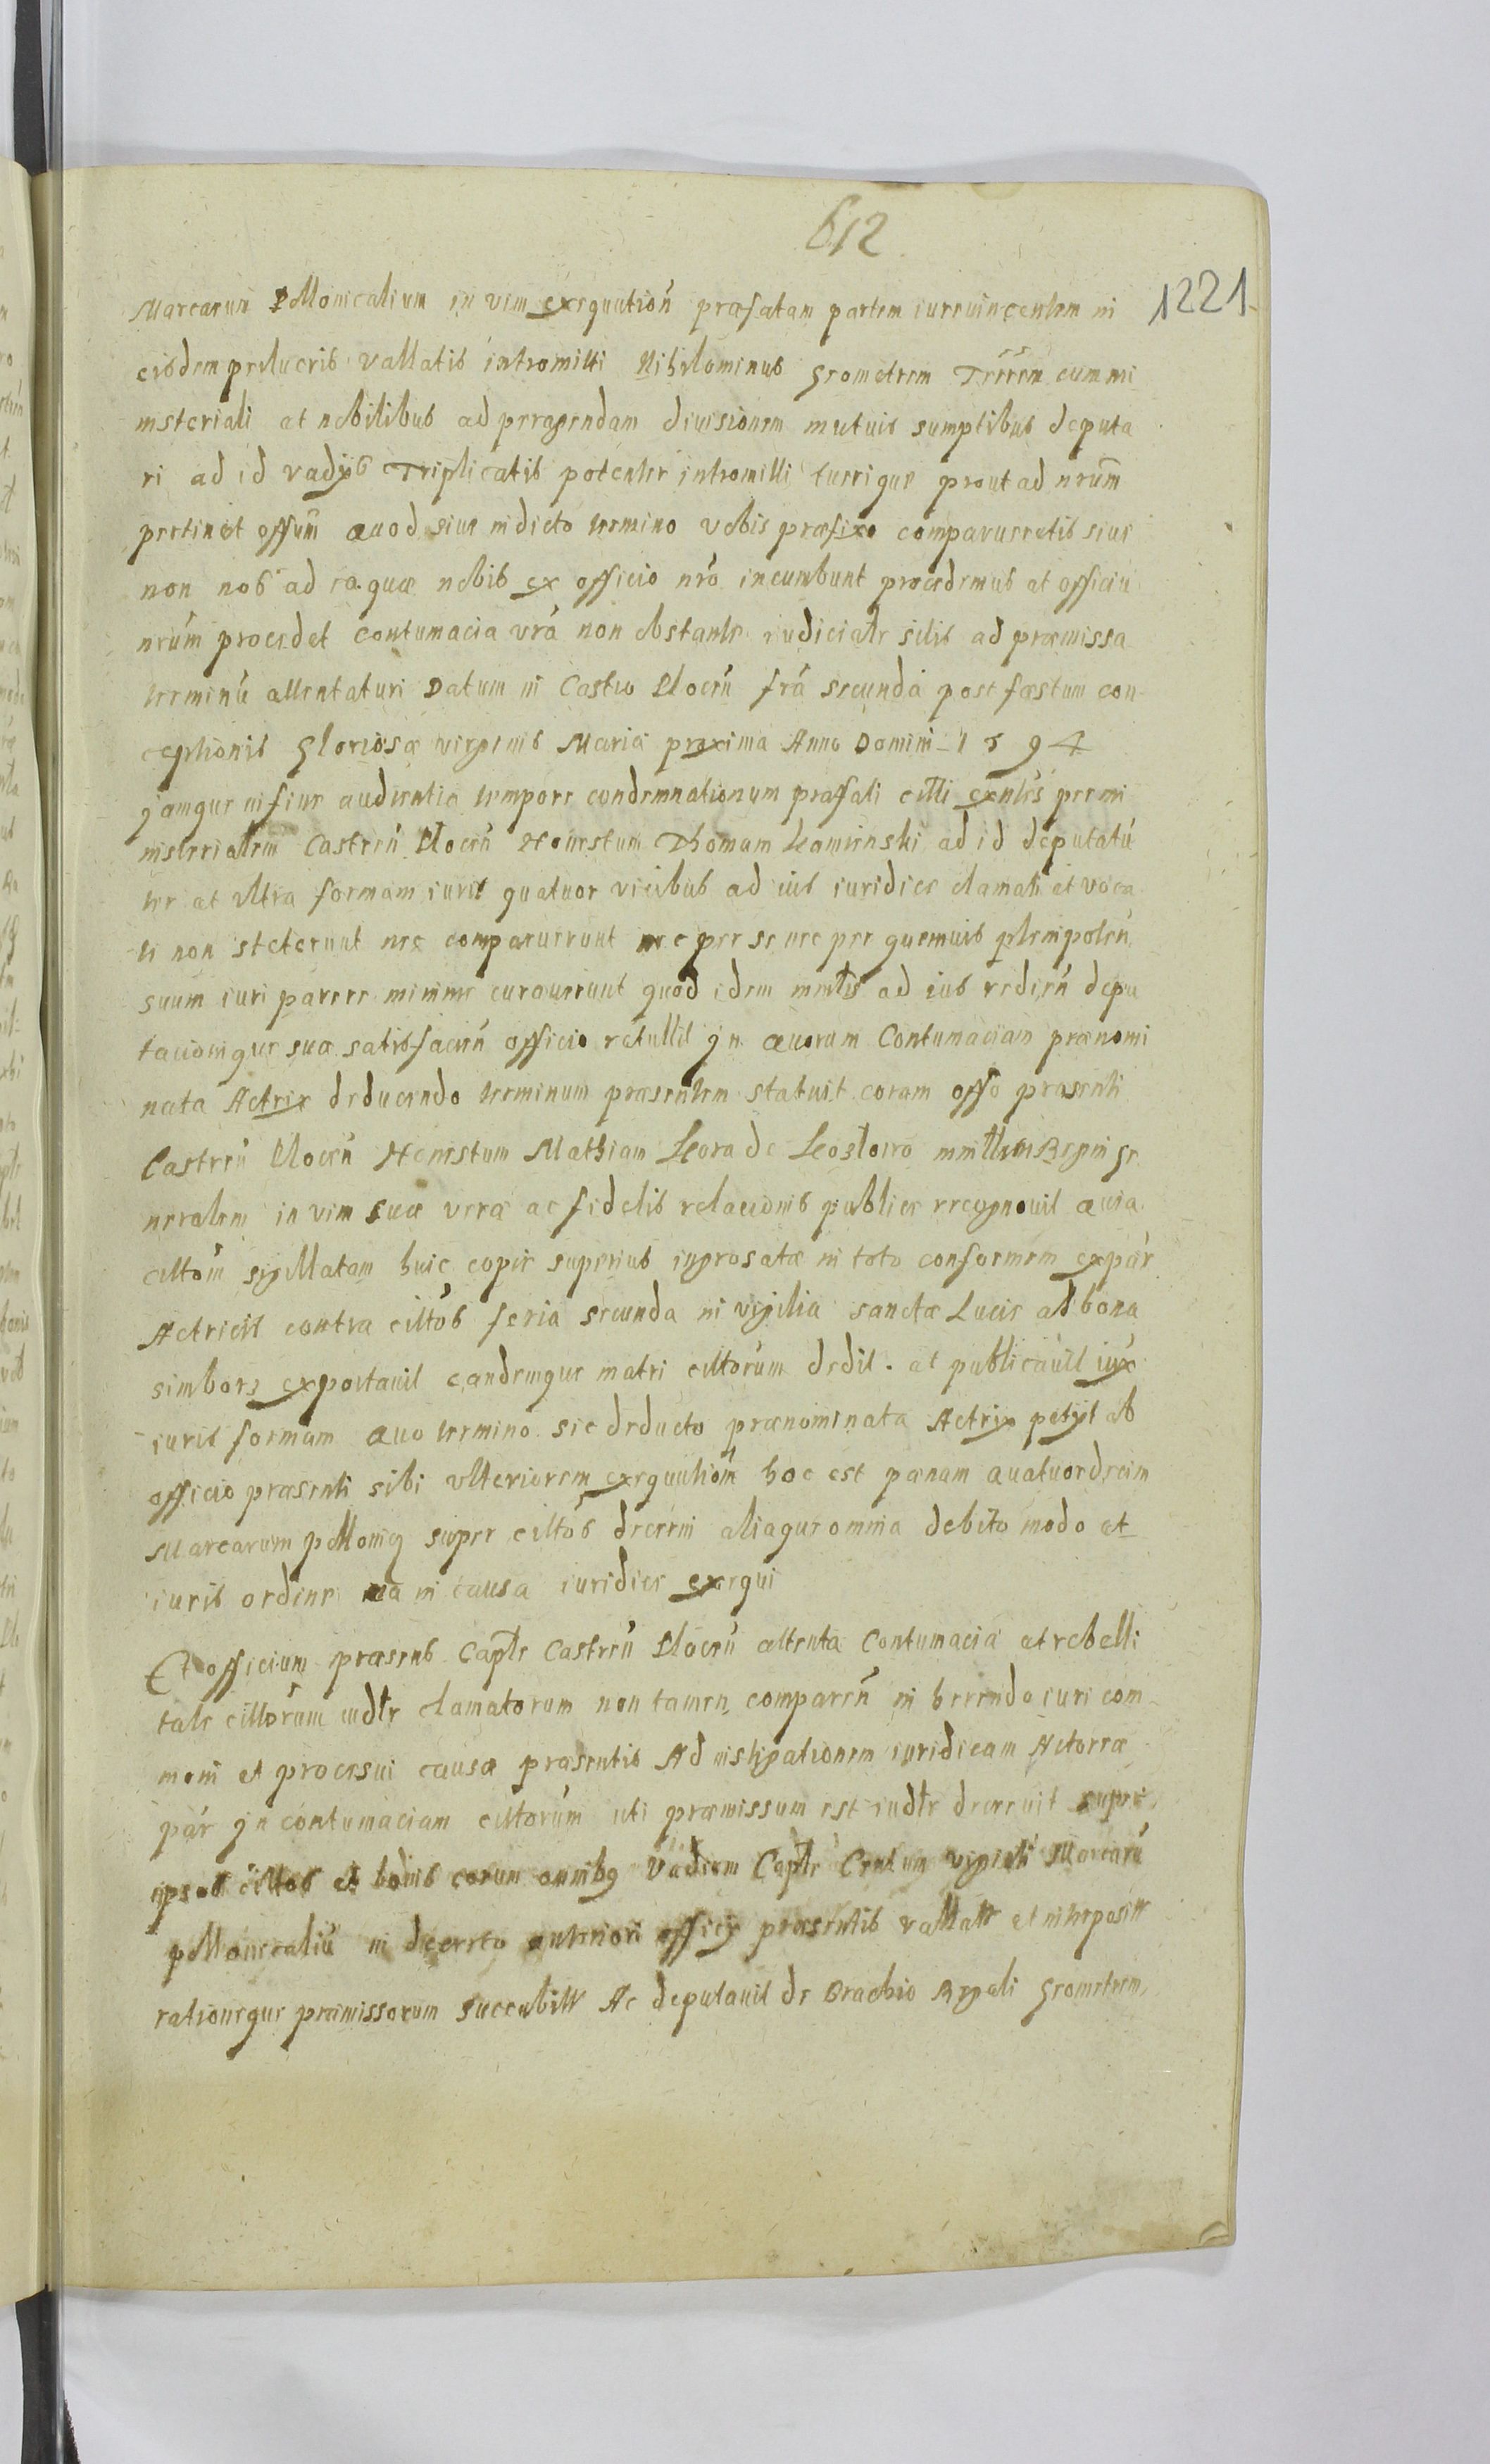 612
1221
Marcarum Pollonicalium in vim exequution præfatam partem iurevincentem in
eisdem pro lucris vallatis intromitti Nihilominus Geometrem Trrem cum mi
nisteriali et nobilibus ad peragendam diuisionem mutuis sumptibus deputa
ri ad id vadÿs Triplicatis potenter intromitti tuerique prout ad nrum
pertinet offum Quod siue in dicto termino vobis præfixo comparueretis siue
non nos ad ea quæ nobis ex officio nro incumbunt procedemus et officiu
nrum procedet contumacia vra non obstante iudicialr sitis ad præmissa
terminu attentaturi Datum in Castro Plocen fra secunda post fæstum con
ceptionis Gloriosæ virginis Mariæ proxima Anno Domini 1694
Jamque in fine audientiæ tempore condemnationum præfati citti exntes per mi
nisterialem Castren Plocen Honestum Thomam Kamienski ad id deputatu
ter et vltra formam iuris quatuor vicibus ad ius iuridice clamati et voca
ti non steterunt nec comparuerunt nec per se nec per quemuis plenipoten
suum iuri parere minime curauerunt quod idem mnlis ad ius redien depu
tacionique suæ satisfacien officio retullit Jn Quorum Contumaciam prænomi
nata Actrix deducendo terminum præsentem statuit coram offo præsenti
Castren Plocen Honestum Mathiam Kora de Kozlowo mnltem Regni Ge
neralem in vim suæ veræ ac fidelis relacionis publice recognouit Quia
cittom sigillatam huic copiæ superius ingrosatæ in toto conformem ex par
Actricis contra cittos feria secunda in vigilia sanctæ Luciæ ad bona
simbory exportauit eandemque matri cittorum dedit. et publicauit iux
iuris formam Quo termino sic deducto prænominata Actrix petÿt ab
officio præsenti sibi vlteriorem exequutiom hoc est pænam Quatuordecim
Marcarum pollonicq super cittos decerni aliaque omnia debito modo et
iuris ordine in causa iuridice exequi
Et officium præsens Caple Castren Plocen attenta Contumacia et rebelli
tate cittorum iudlr clamatorum non tamen comparen in herendo iuri com
muni et procesui causæ præsentis Ad instigationem iuridicam Actoreæ
par Jn contumaciam cittorum uti præmissum est iudlr decreuit super
ipsos cittos et bonis eorum omnibq Vadium Caple Centum viginti Marcaru
pollonicaliu in decreto anteriori officÿ præsentis vallatr et interpositr
rationeque præmissorum succubitr Ac deputauit de Brachio Regali Geometrem